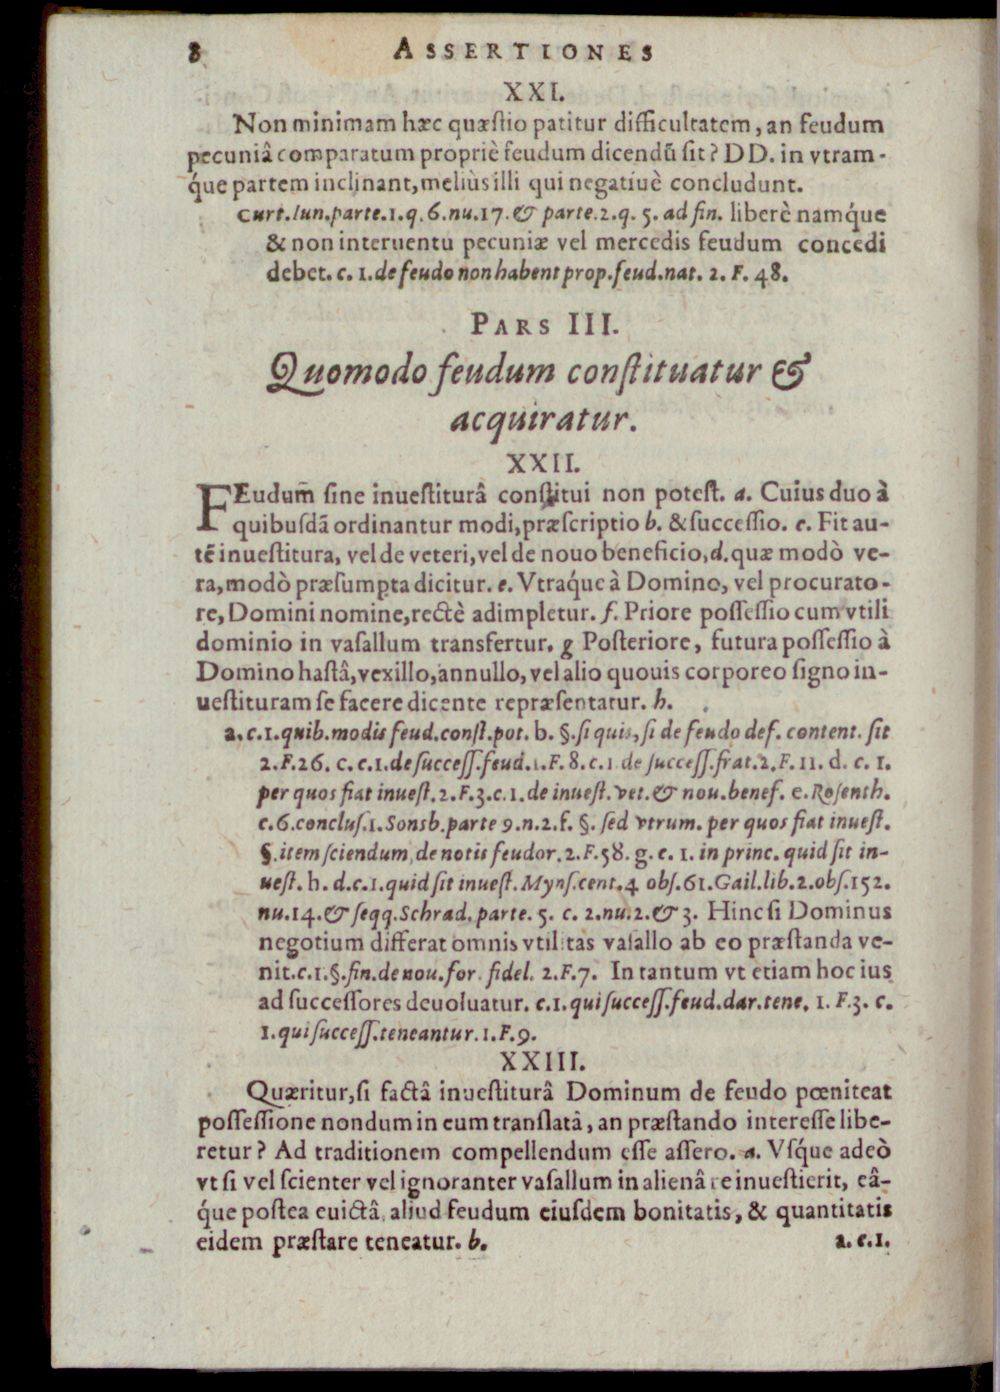 8 ASSERTIONES
XXI.
Non minimam hæc quæstio patitur difficultatem, an feudum
pecuniâ comparatum propriè feudum dicendũ sit? DD. in vtram-
q́ue partem inclinant, meliùs illi qui negatiuè concludunt.
Curt. Iun. parte. 1. q. 6. nu. 17. & parte. 2. q. 5. ad fin. liberè namq́ue
& non interuentu pecuniæ vel mercedis feudum concedi
debet. c. 1. de feudo non habent prop. feud. nat. 2. F. 48.
PARS III.
Quomodo feudum constituatur &
acquiratur.
XXII.
FEudum̃ sine inuestiturâ constitui non potest. a. Cuius duo à
quibusdã ordinantur modi, præscriptio b. & successio. c. Fit au-
tẽ inuestitura, vel de veteri, vel de nouo beneficio, d. quæ modò ve-
ra, modò præsumpta dicitur. e. Vtraq́ue à Domino, vel procurato-
re, Domini nomine, rectè adimpletur. f. Priore possessio cum vtili
dominio in vasallum transfertur. g Posteriore, futura possessio à
Domino hastâ, vexillo, annullo, vel alio quouis corporeo signo in-
uestituram se facere dicente repræsentatur. h.
a. c. 1. quib. modis feud. const. pot. b. §. si quis, si de feudo def. content. sit
2. F. 26. c. c. 1. de success. feud. 1. F. 8. c. 1 de success. frat. 2. F. 11. d. c. 1.
per quos fiat inuest. 2. F. 3. c. 1. de inuest. vet. & nou. benef. e. Rosenth.
c. 6. conclus. 1. Sonsb. parte 9. n. 2. f. §. sed vtrum. per quos fiat inuest.
§. item sciendum de notis feudor. 2. F. 58. g. c. 1. in princ. quid sit in-
uest. h. d. c. 1. quid sit inuest. Myns. cent. 4 obs. 61. Gail. lib. 2. obs. 152.
nu. 14. & seqq. Schrad. parte. 5. c. 2. nu. 2. & 3. Hinc si Dominus
negotium differat omnis vtilitas vasallo ab eo præstanda ve-
nit. c. 1. §. fin. de nou. for. fidel. 2. F. 7. In tantum vt etiam hoc ius
ad successores deuoluatur. c. 1. qui success. feud. dar. tene. 1. F. 3. c.
1. qui success. teneantur. 1. F. 9.
XXIII.
Quæritur, si factâ inuestiturâ Dominum de feudo pœniteat
possessione nondum in eum translatâ, an præstando interesse libe-
retur? Ad traditionem compellendum esse assero. a. Vsq́ue adeò
vt si vel scienter vel ignoranter vasallum in alienâ re inuestierit, eâ-
q́ue postea euictâ, aliud feudum eiusdem bonitatis, & quantitatis
eidem præstare teneatur. b.
a. c. 1.